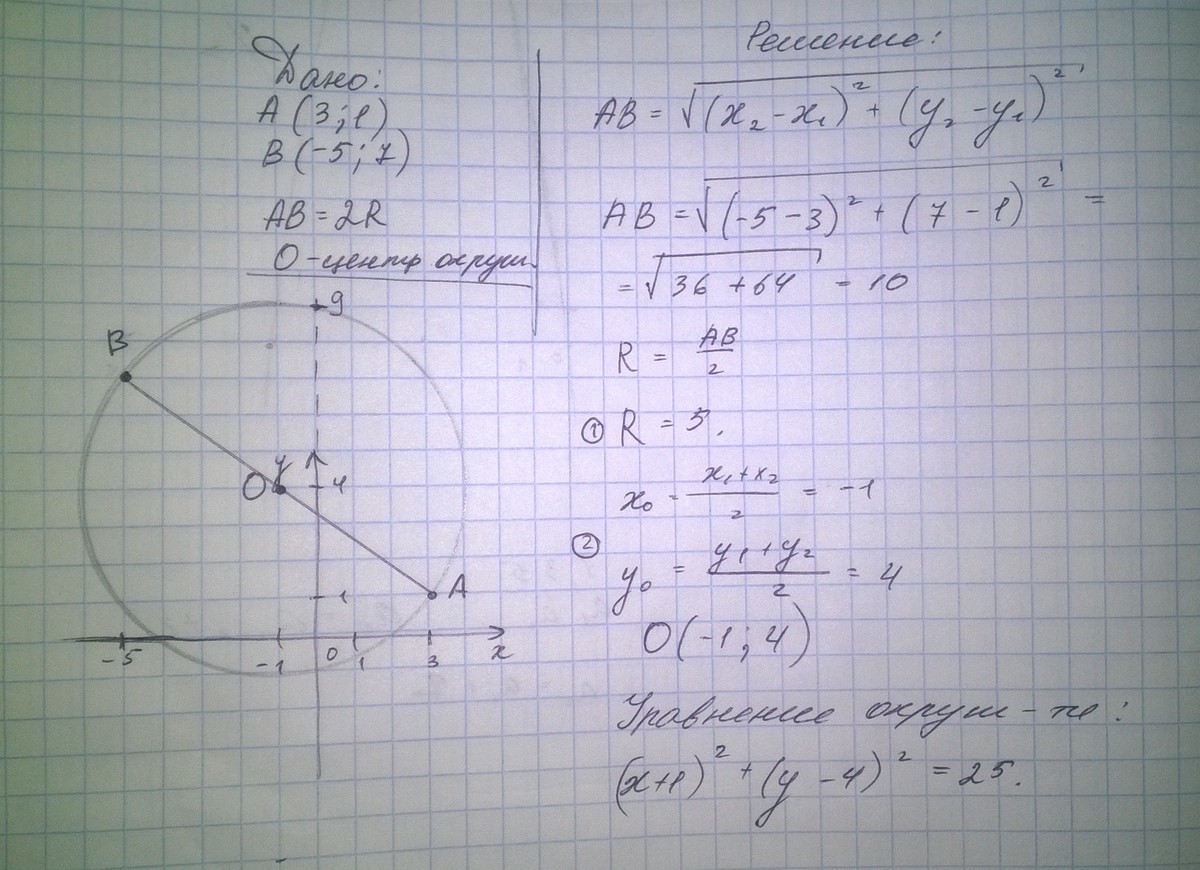 Дано:
A (3; 1)
B (-5; 7)
AB = 2R
O - центр окруж.
Решение:
AB = √((x₂ - x₁)² + (y₂ - y₁)²)
AB = √((-5 - 3)² + (7 - 1)²) =
= √(36 + 64) = 10
R = AB/2
① R = 5.
x₀ = (x₁ + x₂)/2 = -1
②
y₀ = (y₁ + y₂)/2 = 4
O(-1; 4)
Уравнение окруж-ти:
(x+1)² + (y - 4)² = 25.
9
B
y
O
4
1
A
-5
-1
0
1
3
x